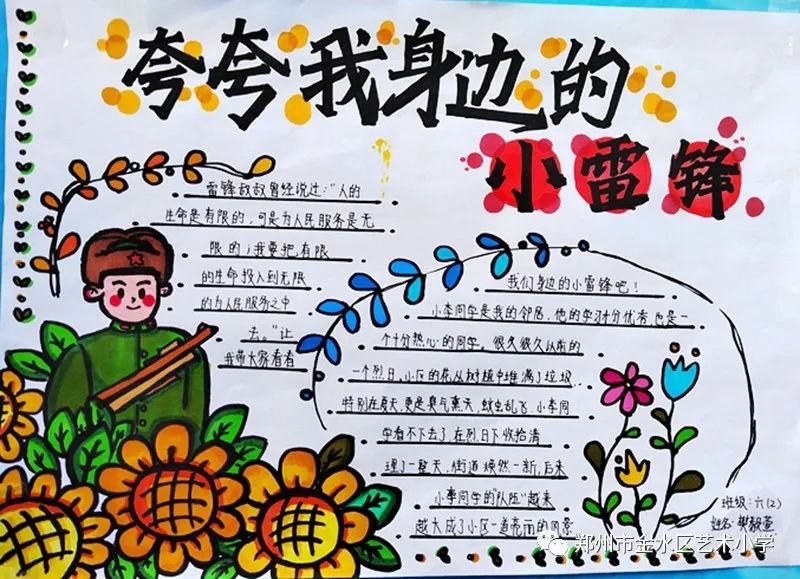 夸夸我身边的
小雷锋
雷锋叔叔曾经说过:"人的
生命是有限的,可是为人民服务是无
限的;我要把有限
的生命投入到无限
的为人民服务之中
去。"让
我带大家看看
我们身边的小雷锋吧!
小李同学是我的邻居,他的学习十分优秀,也是一
个十分热心的同学。很久很久以前的
一个烈日,小区的花丛树植中堆满了垃圾,
特别在夏天,更是臭气熏天,蚊虫乱飞,小李同
学看不下去了,在烈日下收拾清
理了一整天,街道焕然一新,后来
小李同学的"队伍"越来
越大成了小区一道亮丽的风景
班级:六(2)
姓名:樊毅萱
郑州市金水区艺术小学